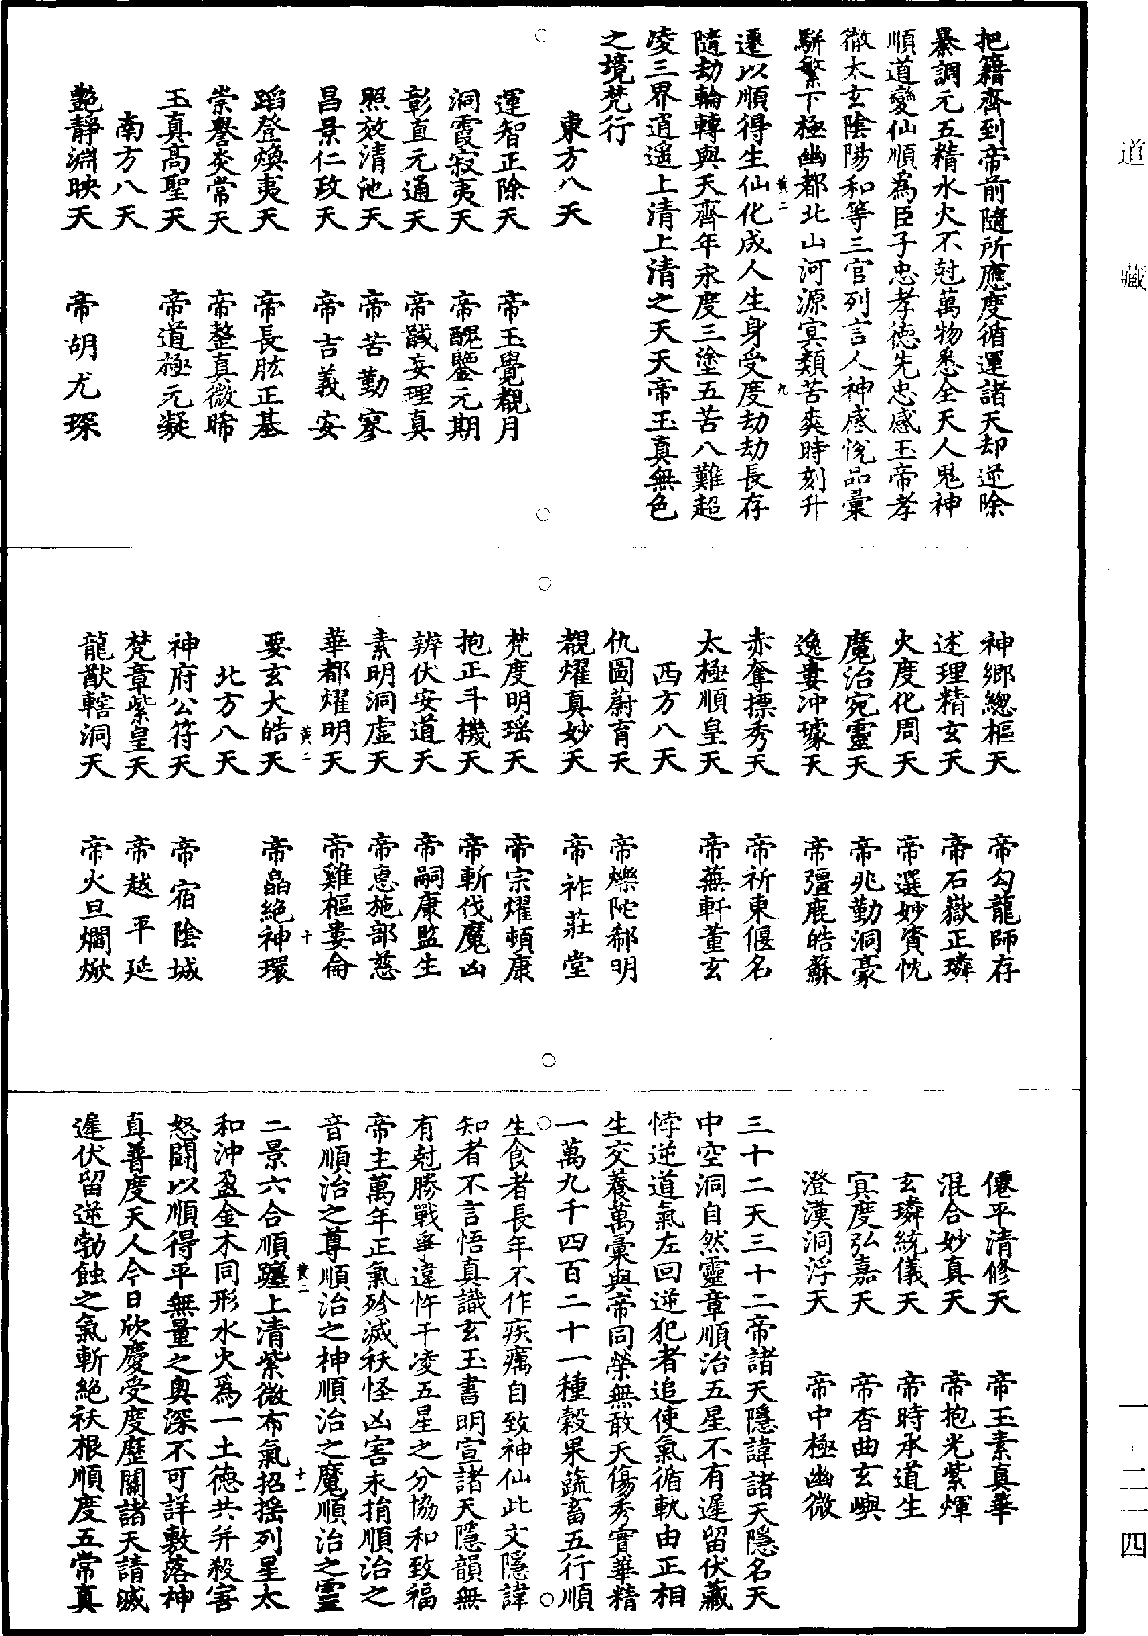 把籍齊到帝前隨所應度循運諸天却逆除
綦調元五精水火不尅萬物悉全天人鬼神
順道變仙順為臣子忠孝德先忠感玉帝孝
徹太玄陰陽和等三官列言人神感悅品彙
駢繁下極幽都北山河源冥類苦爽時刻升
黃二 九
遷以順得生仙化成人生身受度劫劫長存
隨劫輪轉與天齊年永度三塗五苦八難超
凌三界逍遥上清上清之天天帝玉真無色
之境梵行
東方八天
運智正除天 帝玉覺觀月
洞霞寂夷天 帝醜鑒元期
彰直元通天 帝誠妄理真
照效清池天 帝苦勤寥
昌景仁政天 帝吉義安
蹈登煥夷天 帝長肱正基
崇譽炎常天 帝整真微晞
玉真高聖天 帝道極元凝
南方八天
艷靜淵映天 帝胡尤琛
神鄉總樞天 帝勾龍師存
述理精玄天 帝石嶽正璘
火度化周天 帝選妙資忱
魔治宛靈天 帝兆勤洞豪
逸婁冲璩天 帝彊鹿皓蘇
赤奪摽秀天 帝祈東偃名
太極順皇天 帝蕪軒董玄
西方八天
仇圖蔚育天 帝爍陀郗明
覩燿真妙天 帝祚莊堂
梵度明瑶天 帝宗燿頓康
抱正斗機天 帝斬伐魔凶
辨伏安道天 帝嗣康監生
素明洞虛天 帝惠施部慈
華都燿明天 帝雞樞婁侖
黃二 十
要玄大皓天 帝晶絕神環
北方八天
神府公符天 帝宿陰城
梵章紫皇天 帝越平延
龍猷轄洞天 帝火旦爓焮
僊平清修天 帝玉素真華
混合妙真天 帝抱光紫煇
玄璘統儀天 帝時承道生
冥度弘嘉天 帝杳曲玄嶼
澄漢洞浮天 帝中極幽微
三十二天三十二帝諸天隱諱諸天隱名天
中空洞自然靈章順治五星不有遲留伏藏
悖逆道氣左回逆犯者追使氣循軌由正相
生交養萬彙與帝同榮無敢天傷秀實華精
一萬九千四百二十一種穀果蔬畜五行順
生食者長年不作疾癘自致神仙此文隱諱
知者不言悟真識玄玉書明宣諸天隱韻無
有尅勝戰爭違忤干凌五星之分協和致福
帝主萬年正氣殄滅袄怪凶害未捎順治之
音順治之尊順治之神順治之魔順治之靈
黃二 十一
二景六合順躔上清紫微布氣招摇列星太
和沖盈金木同形水火為一土德共并殺害
怒鬭以順得平無量之奥深不可詳敷落神
真普度天人今日欣慶受度歷關諸天請滅
遲伏留逆勃蝕之氣斬絕袄根順度五常真
道藏
一·二一四